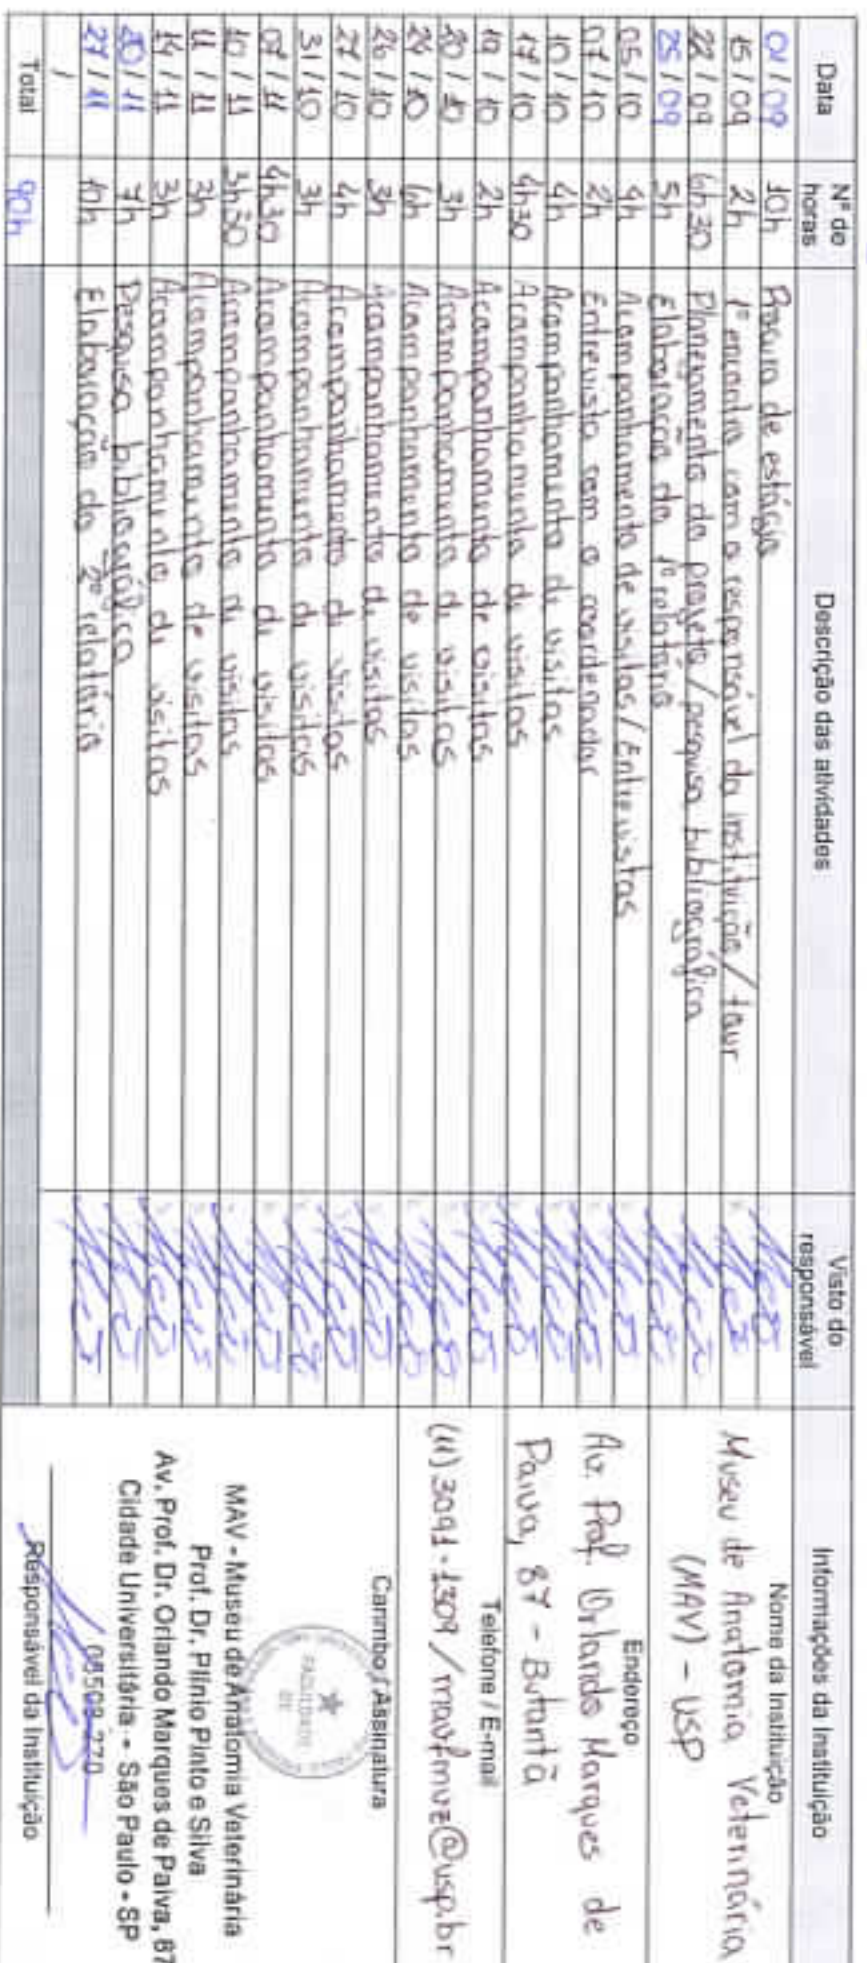 Data Nº de horas Descrição das atividades Visto do responsável Informações da Instituição
01/09 10h Procura de estágio
15/09 2h 1º encontro com o responsável da instituição / tour
22/09 6h30 Planejamento do projeto / pesquisa bibliográfica
25/09 5h Elaboração do 1º relatório
05/10 4h Acompanhamento de visitas / Entrevistas
07/10 2h Entrevista com o coordenador
10/10 4h Acompanhamento de visitas
17/10 4h30 Acompanhamento de visitas
19/10 2h Acompanhamento de visitas
20/10 3h Acompanhamento de visitas
24/10 6h Acompanhamento de visitas
26/10 3h Acompanhamento de visitas
27/10 4h Acompanhamento de visitas
31/10 3h Acompanhamento de visitas
07/11 4h30 Acompanhamento de visitas
10/11 3h30 Acompanhamento de visitas
11/11 3h Acompanhamento de visitas
14/11 3h Acompanhamento de visitas
20/11 7h Pesquisa bibliográfica
27/11 10h Elaboração do 2º relatório
/
Total 90h
Nome da Instituição
Museu de Anatomia Veterinária
(MAV) - USP
Endereço
Av. Prof. Orlando Marques de
Paiva, 87 - Butantã
Telefone / E-mail
(11) 3091-1309 / mavfmvz@usp.br
Carimbo / Assinatura
FACULDADE DE
MAV - Museu de Anatomia Veterinária
Prof. Dr. Plínio Pinto e Silva
Av. Prof. Dr. Orlando Marques de Paiva, 87
Cidade Universitária - São Paulo - SP
05508-270
Responsável da Instituição